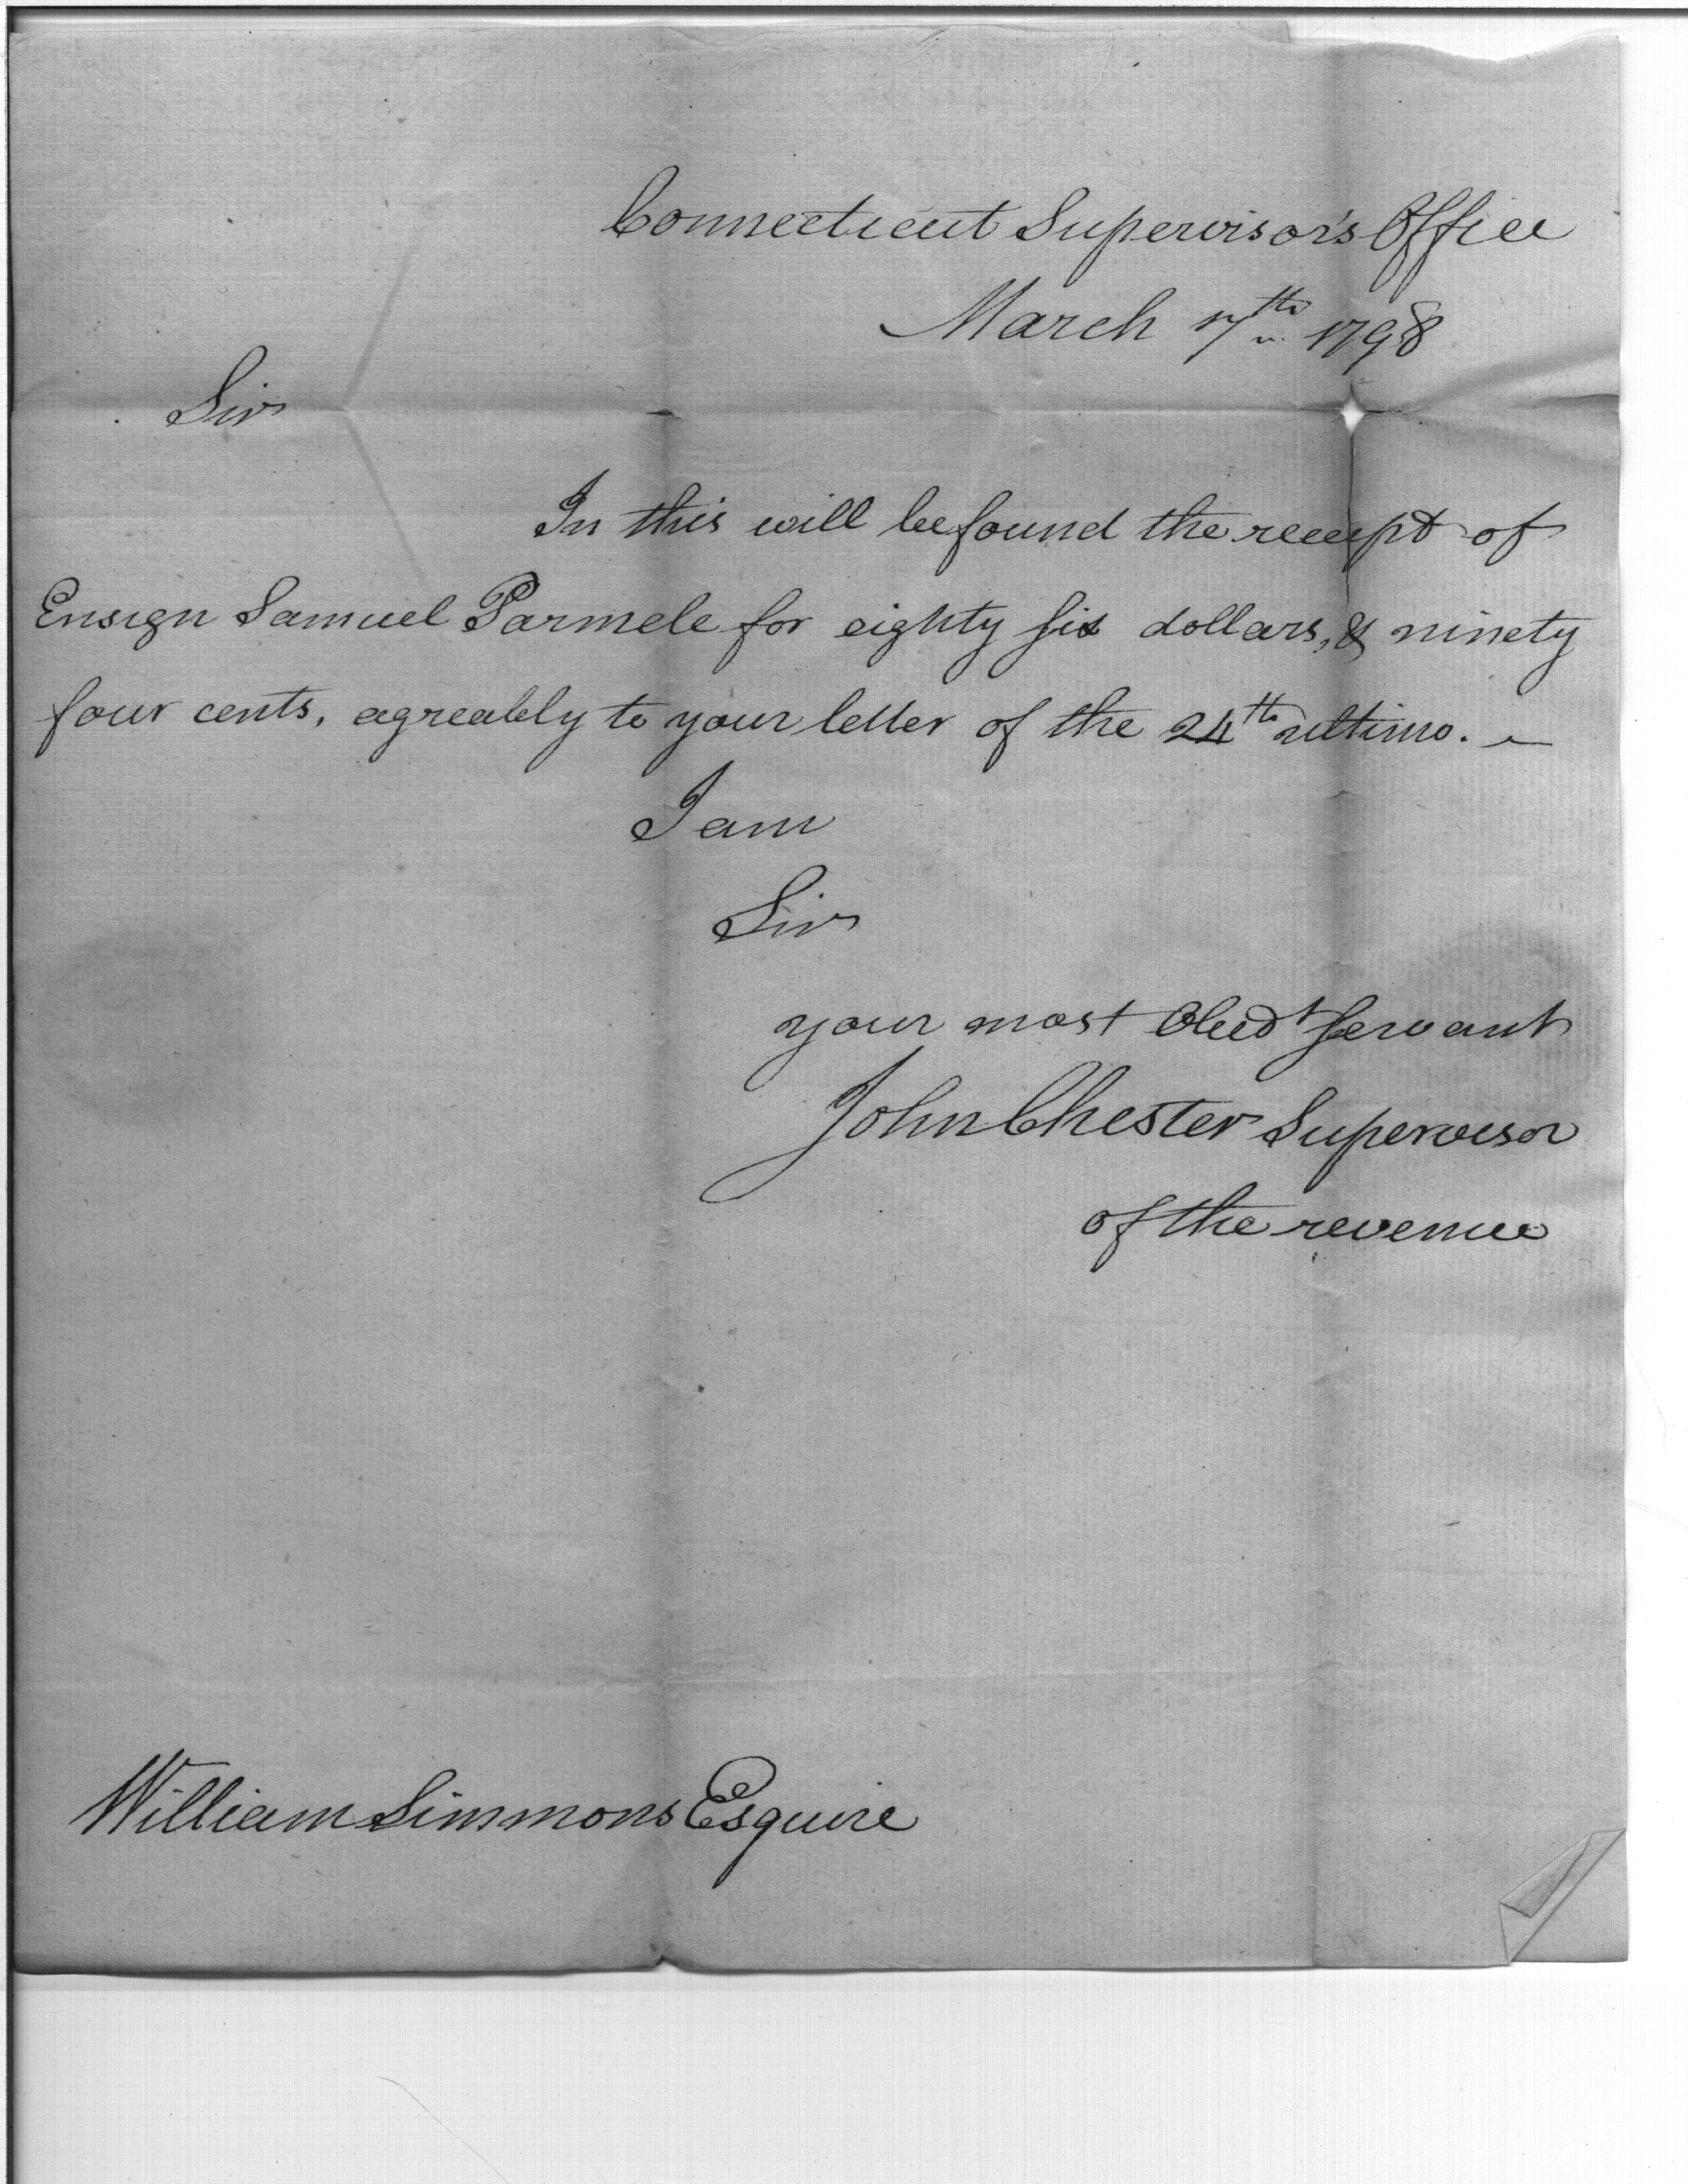 Connecticut Supervisor's Office
March 7th 1798
Sir
In this will be found the receipt of
Ensign Samuel Parmele for eighty six dollars, & ninety
four cents, agreably to your letter of the 24th ultimo. —
I am
Sir
your most Obedt servant
John Chester Supervisor
of the revenue
William Simmons Esquire